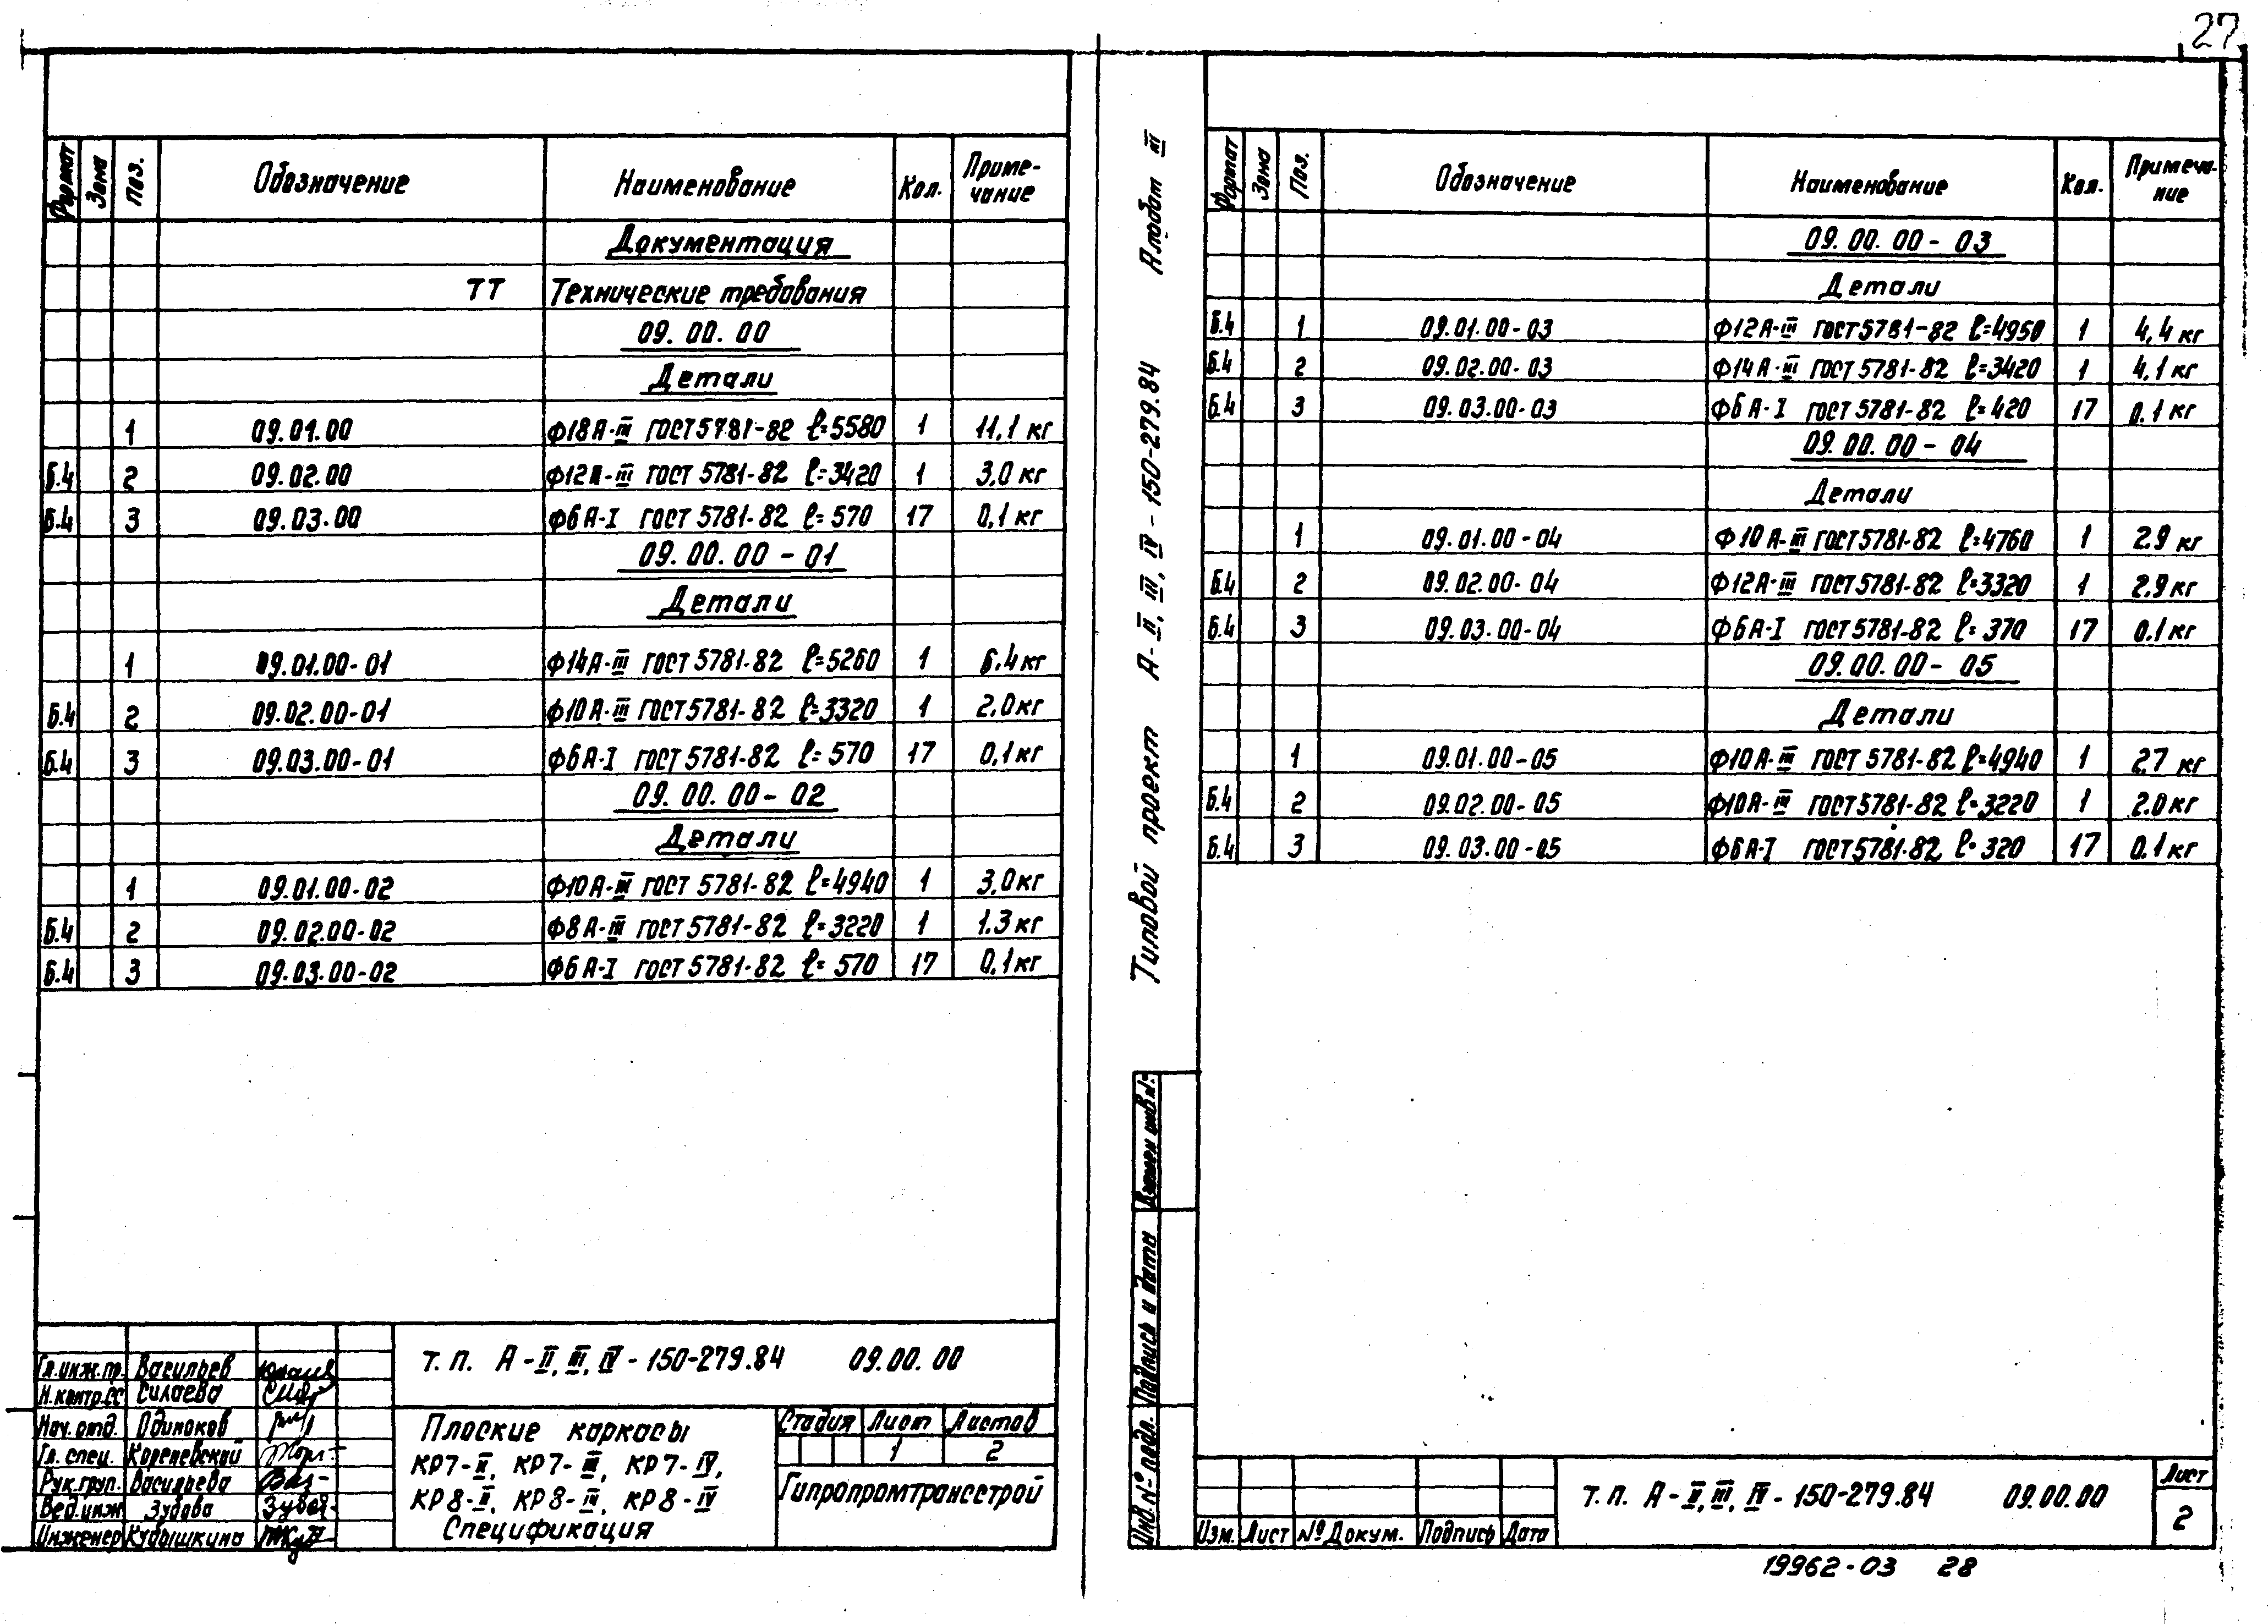 27
Формат Зона Поз. Обозначение Наименование Кол. Приме-
чание
Документация
ТТ Технические требования
09. 00. 00
Детали
1 09.01.00 Ф18А-III ГОСТ5781-82 ℓ=5580 1 11,1 кг
Б.4 2 09.02.00 Ф12А-III ГОСТ 5781-82 ℓ=3420 1 3,0 кг
Б.4 3 09.03.00 Ф6А-I ГОСТ 5781-82 ℓ=570 17 0,1 кг
09. 00. 00 - 01
Детали
1 09.01.00-01 Ф14А-III ГОСТ 5781-82 ℓ=5260 1 6.4 кг
Б.4 2 09.02.00-01 Ф10А-III ГОСТ5781-82 ℓ=3320 1 2.0кг
Б.4 3 09.03.00-01 Ф6А-I ГОСТ 5781-82 ℓ=570 17 0,1 кг
09. 00. 00 - 02
Детали
1 09.01.00-02 Ф10А-III ГОСТ 5781-82 ℓ=4940 1 3,0кг
Б.4 2 09.02.00-02 Ф8А-III ГОСТ 5781-82 ℓ=3220 1 1.3 кг
Б.4 3 09.03.00-02 Ф6А-I ГОСТ 5781-82 ℓ=570 17 0,1 кг
Гл.инж.пр. Васильев
Н.контр.СС Силаева
Нач. отд. Одиноков
Гл. спец. Кореневский
Рук.груп. Васильева
Вед.инж Зубова
Инженер Кубышкина
т. п. А-II, III, IV-150-279.84 09.00.00
Плоские каркасы
КР7-II, КР7-III, КР7-IV,
КР8-II, КР8-III, КР8-IV
Спецификация
Стадия Лист Листов
1 2
Гипропромтрансстрой
Типовой проект А-II, III, IV-150-279.84 Альбом III
Взамен инв.№
Подпись и дата
Инв.№ подл.
Формат Зона Поз. Обозначение Наименование Кол. Примеча-
ние
09. 00. 00 - 03
Детали
Б.4 1 09.01.00-03 Ф12А-III ГОСТ5781-82 ℓ=4950 1 4,4 кг
Б.4 2 09.02.00-03 Ф14А-III ГОСТ 5781-82 ℓ=3420 1 4,1 кг
Б.4 3 09.03.00-03 Ф6А-I ГОСТ 5781-82 ℓ=420 17 0.1 кг
09. 00. 00 - 04
Детали
1 09.01.00-04 Ф10А-III ГОСТ5781-82 ℓ=4760 1 2.9 кг
Б.4 2 09.02.00-04 Ф12А-III ГОСТ5781-82 ℓ=3320 1 2.9 кг
Б.4 3 09.03.00-04 Ф6А-I ГОСТ5781-82 ℓ=370 17 0.1 кг
09.00.00 - 05
Детали
1 09.01.00-05 Ф10А-III ГОСТ 5781-82 ℓ=4940 1 2,7 кг
Б.4 2 09.02.00-05 Ф10А-III ГОСТ5781-82 ℓ=3220 1 2.0 кг
Б.4 3 09.03.00-05 Ф6А-I ГОСТ5781-82 ℓ=320 17 0.1 кг
Изм. Лист № Докум. Подпись Дата
т. п. А-II, III, IV-150-279.84 09.00.00
Лист
2
19962-03 28